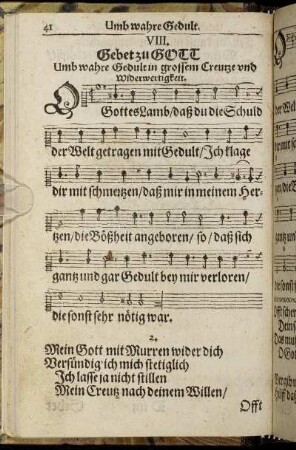 41 Umb wahre Gedult.
VIII.
Gebet zu GOTT
Umb wahre Gedult in grossem Creutze vnd
Widerwertigkeit.
O
Gottes Lamb/daß du die Schuld
der Welt getragen mit Gedult/Ich klage
dir mit schmertzen/daß mir in meinem Her-
tzen/die Bößheit angeboren/ so/daß sich
gantz und gar Gedult bey mir verloren/
die sonst sehr nötig war.
2.
Mein Gott mit Murren wider dich
Versündig ich mich stetiglich
Ich lasse ja nicht stillen
Mein Creutz nach deinem Willen/
Offt